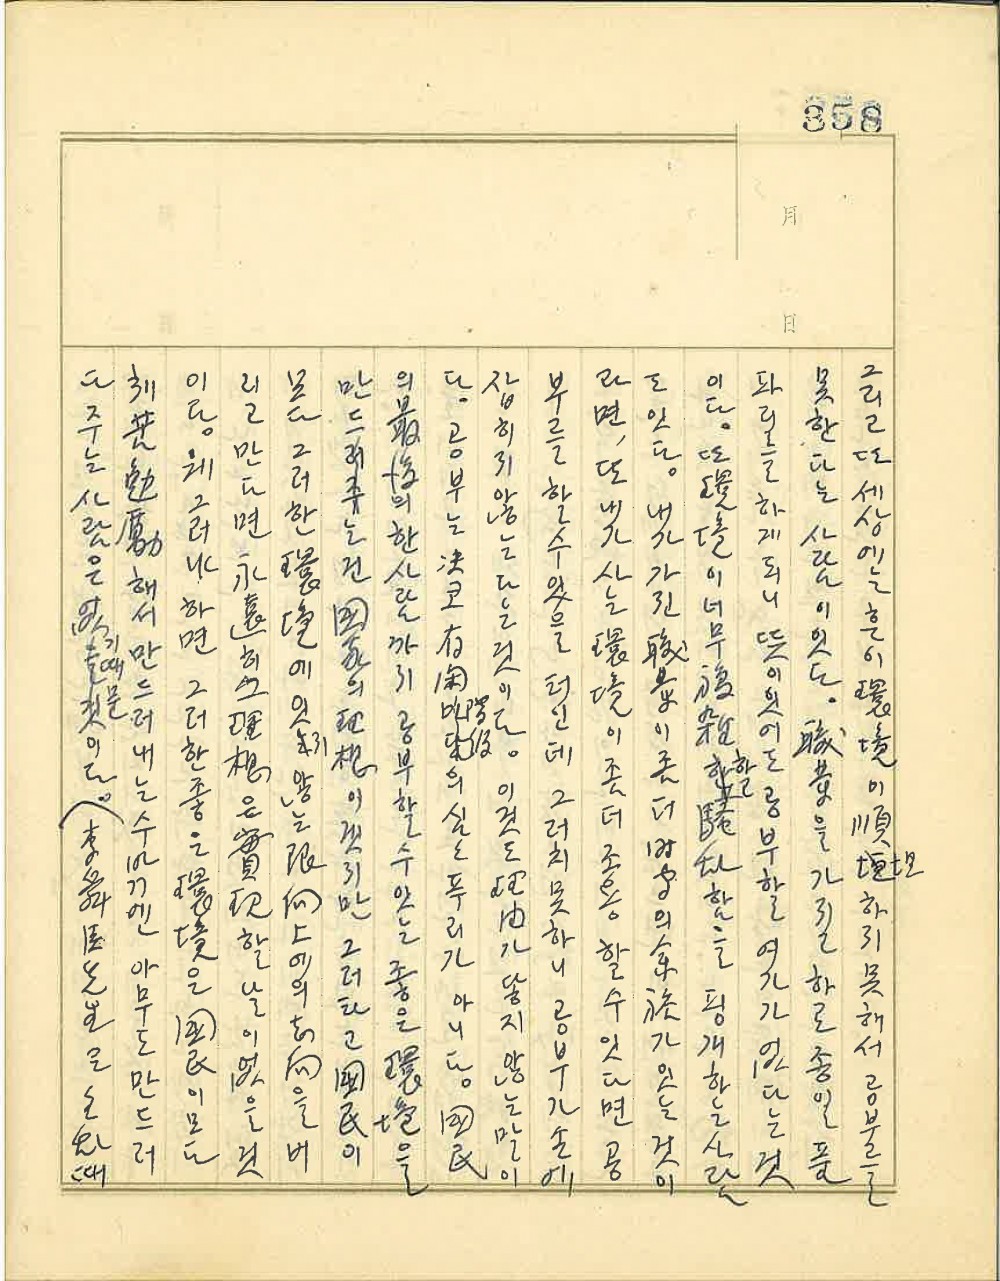 358
月
日
그리고 또 세상에는 흔이 環境이 順坦하지 못해서 공부를
못한다는 사람이 잇다。 職業을 가진 하로종일 품
파리를 하게 되니 뜻이 잇어도 공부할 여가가 없다는 것
이다。 또 環境이 너무 複雜할 함을 핑개하는 사람
도 잇다。 내가 가진 職業이 좀 더 의 余裕가 잇는 것이
라면, 또 내가 사는 環境이 좀 더 조용할 수 잇다면 공
부를 할 수 있을 터인데 그러치 못하니 공부가 손에
잡히지 않는다는 것이다。 이것도 理由가 닿지 않는 말이
다。 공부는 決코 有閑 階級의 심는 푸리가 아니다。 國民
의 最後의 한 사람까지 공부할 수 잇는 좋은 環境을
만드러 주는 건 國家의 理想이겟지만 그러타고 國民이
모다 그러한 環境에 잇지 않는 限 向上에의 志向을 버
리고 만다면 永遠히 그 理想은 實現할 날이 없을 것
이다。 웨 그러냐 하면 그러한 좋은 環境을 國民이 모다
刻苦勉勵해서 만드러 내는 수밖엔 아무도 만드러
다 주는 사람은 없기 때문이다。 李舜臣先生